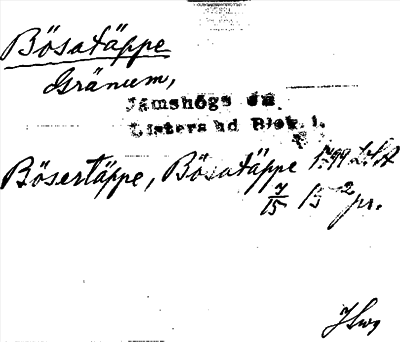 Bösatäppe
Gränum,
Jämshögs sn
Listers hd Blek. l.
Bösertäppe, Bösatäppe 1799 LSA
7/15 pr.